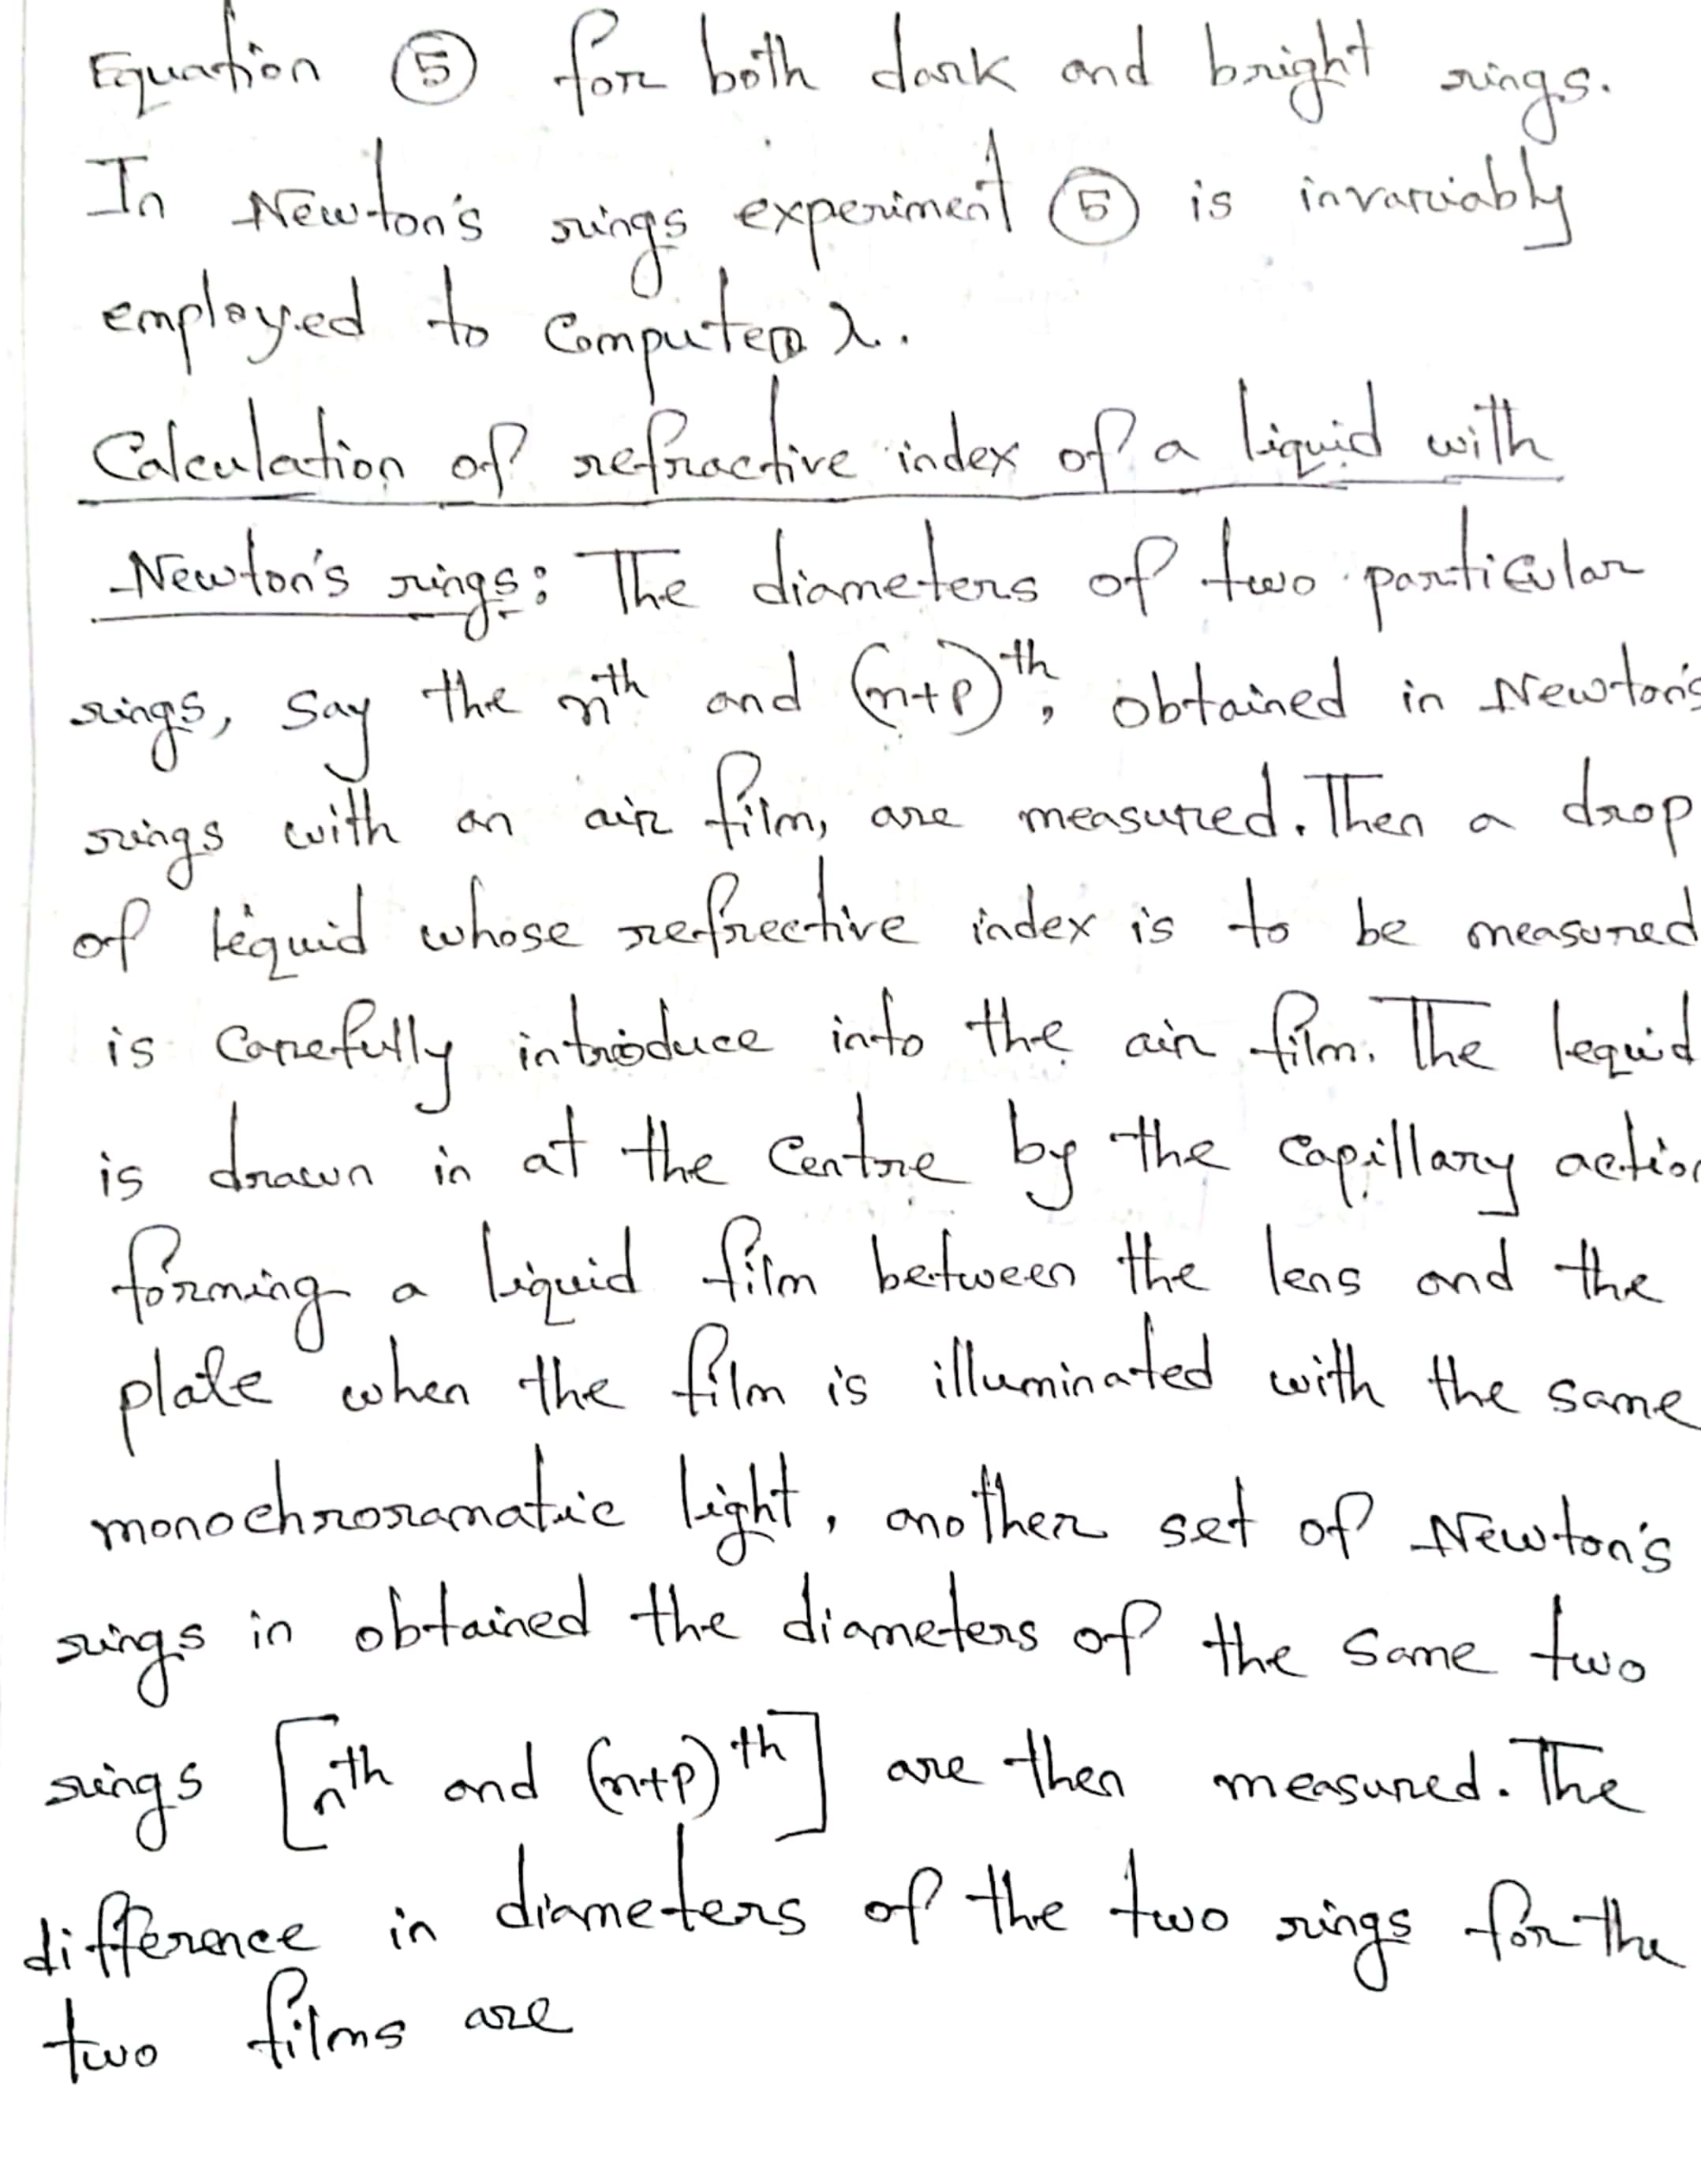 Equation ⑤ for both dark and bright rings.
In Newton's rings experiment ⑤ is invariably
employed to compute λ.
Calculation of refractive index of a liquid with
Newton's rings: The diameters of two particular
rings, say the nth and (n+p)th, obtained in Newton's
rings with an air film, are measured. Then a drop
of lequid whose refrective index is to be measured
is carefully introduce into the air film. The lequid
is drawn in at the centre by the capillary action
forming a liquid film between the lens and the
plate when the film is illuminated with the same
monochroramatic light, another set of Newton's
rings in obtained the diameters of the same two
rings [nth and (n+p)th] are then measured. The
difference in diameters of the two rings for the
two films are